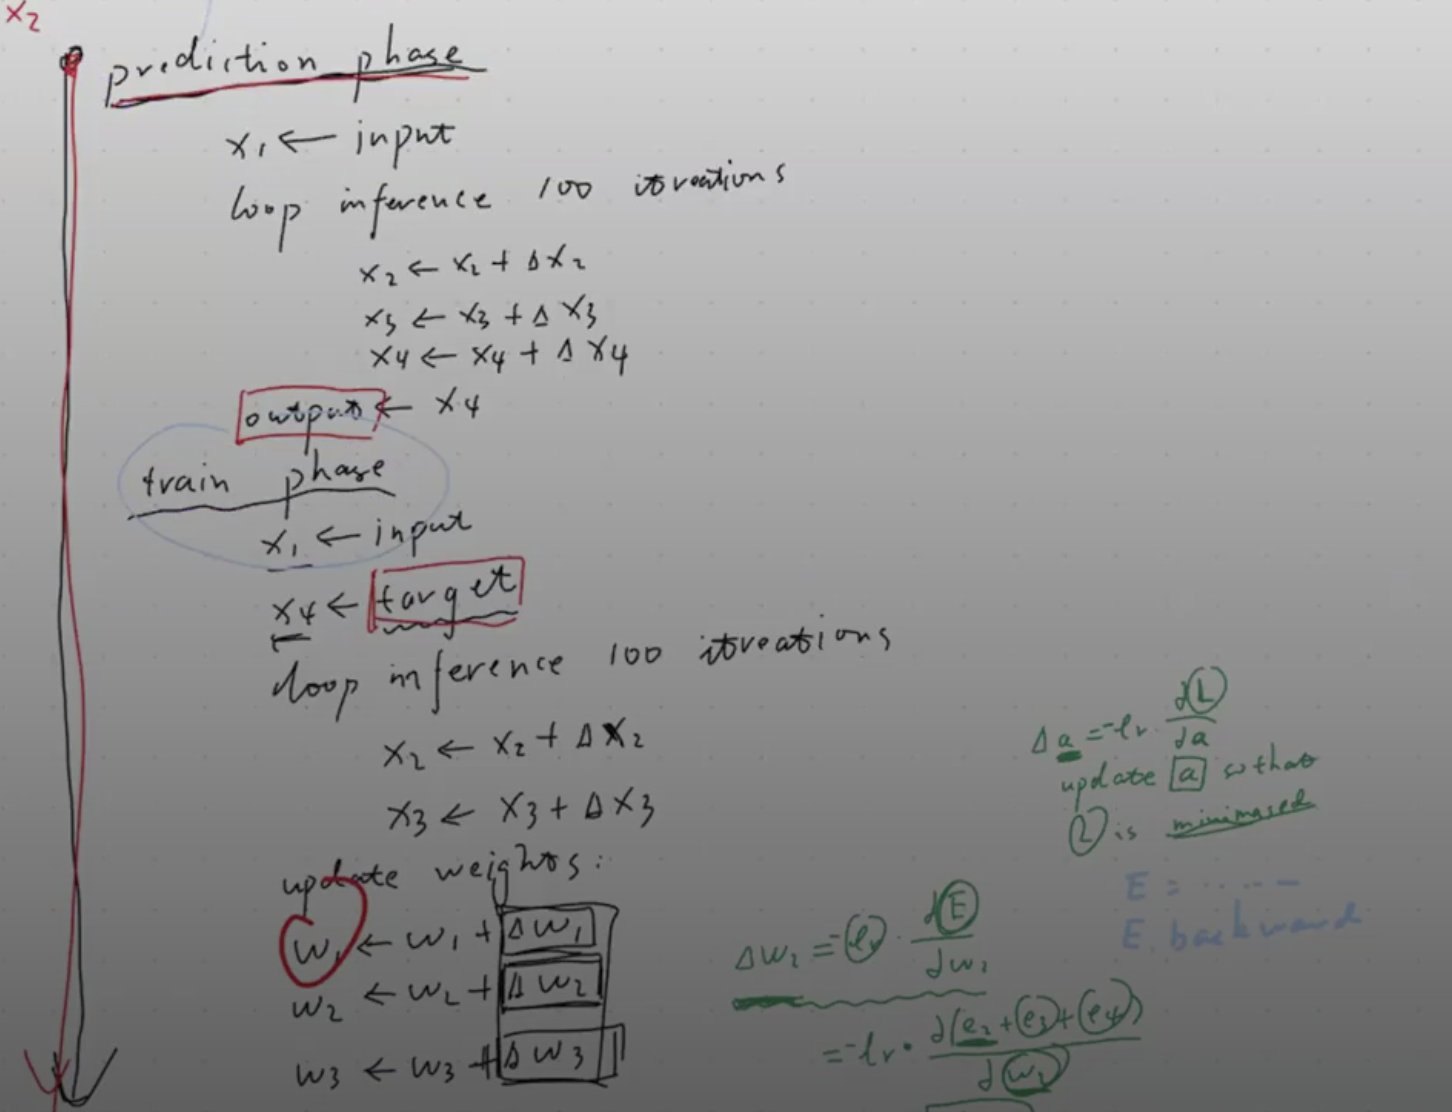 x₂
prediction phase
x₁ ← input
loop inference 100 itreations
x₂ ← x₂ + Δx₂
x₃ ← x₃ + Δx₃
x₄ ← x₄ + Δx₄
output ← x₄
train phase
x₁ ← input
x₄ ← target
loop inference 100 itreations
x₂ ← x₂ + Δx₂
x₃ ← x₃ + Δx₃
update weights:
w₁ ← w₁ + Δw₁
w₂ ← w₂ + Δw₂
w₃ ← w₃ + Δw₃
Δa = -lr · ∂L/∂a
update a so that
L is minimased
E = ......
E. backward
Δw₁ = -lr · ∂E/∂w₁
= -lr · ∂(e₂+e₃+e₄)/∂w₁